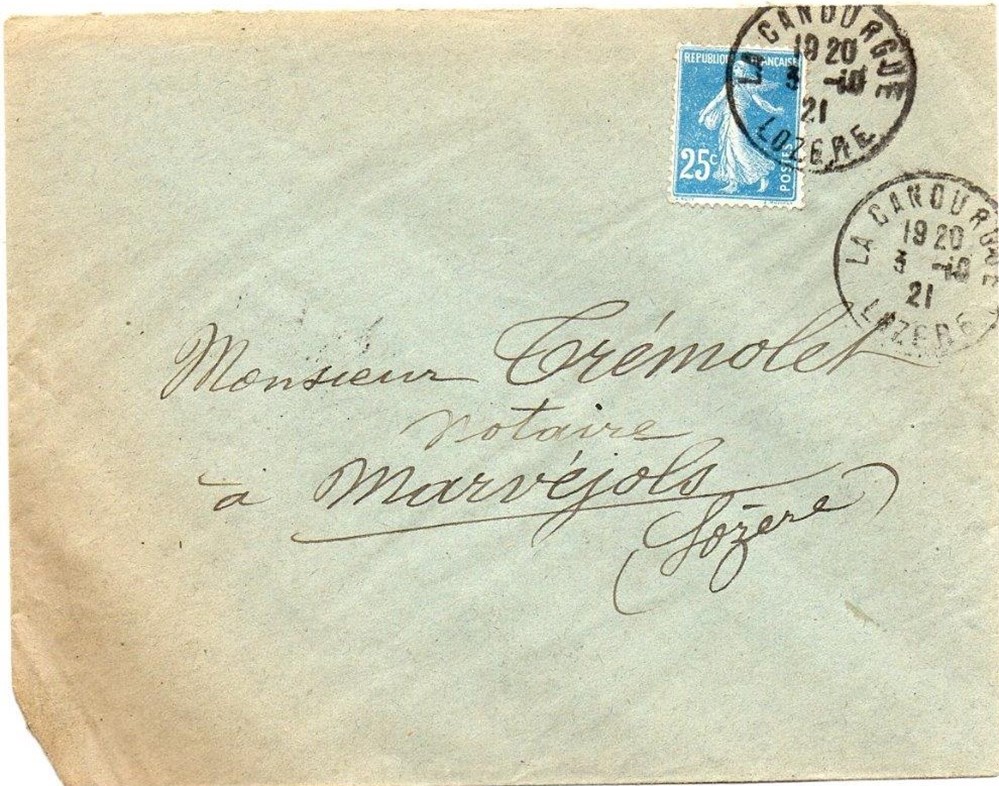 LA CANOURGUE
19 20
3 -10
21
LOZERE
REPUBLIQUE FRANÇAISE
25c
POSTES
LA CANOURGUE
19 20
3 -10
21
LOZERE
Monsieur Trémolet
notaire
à Marvéjols
(Lozère)